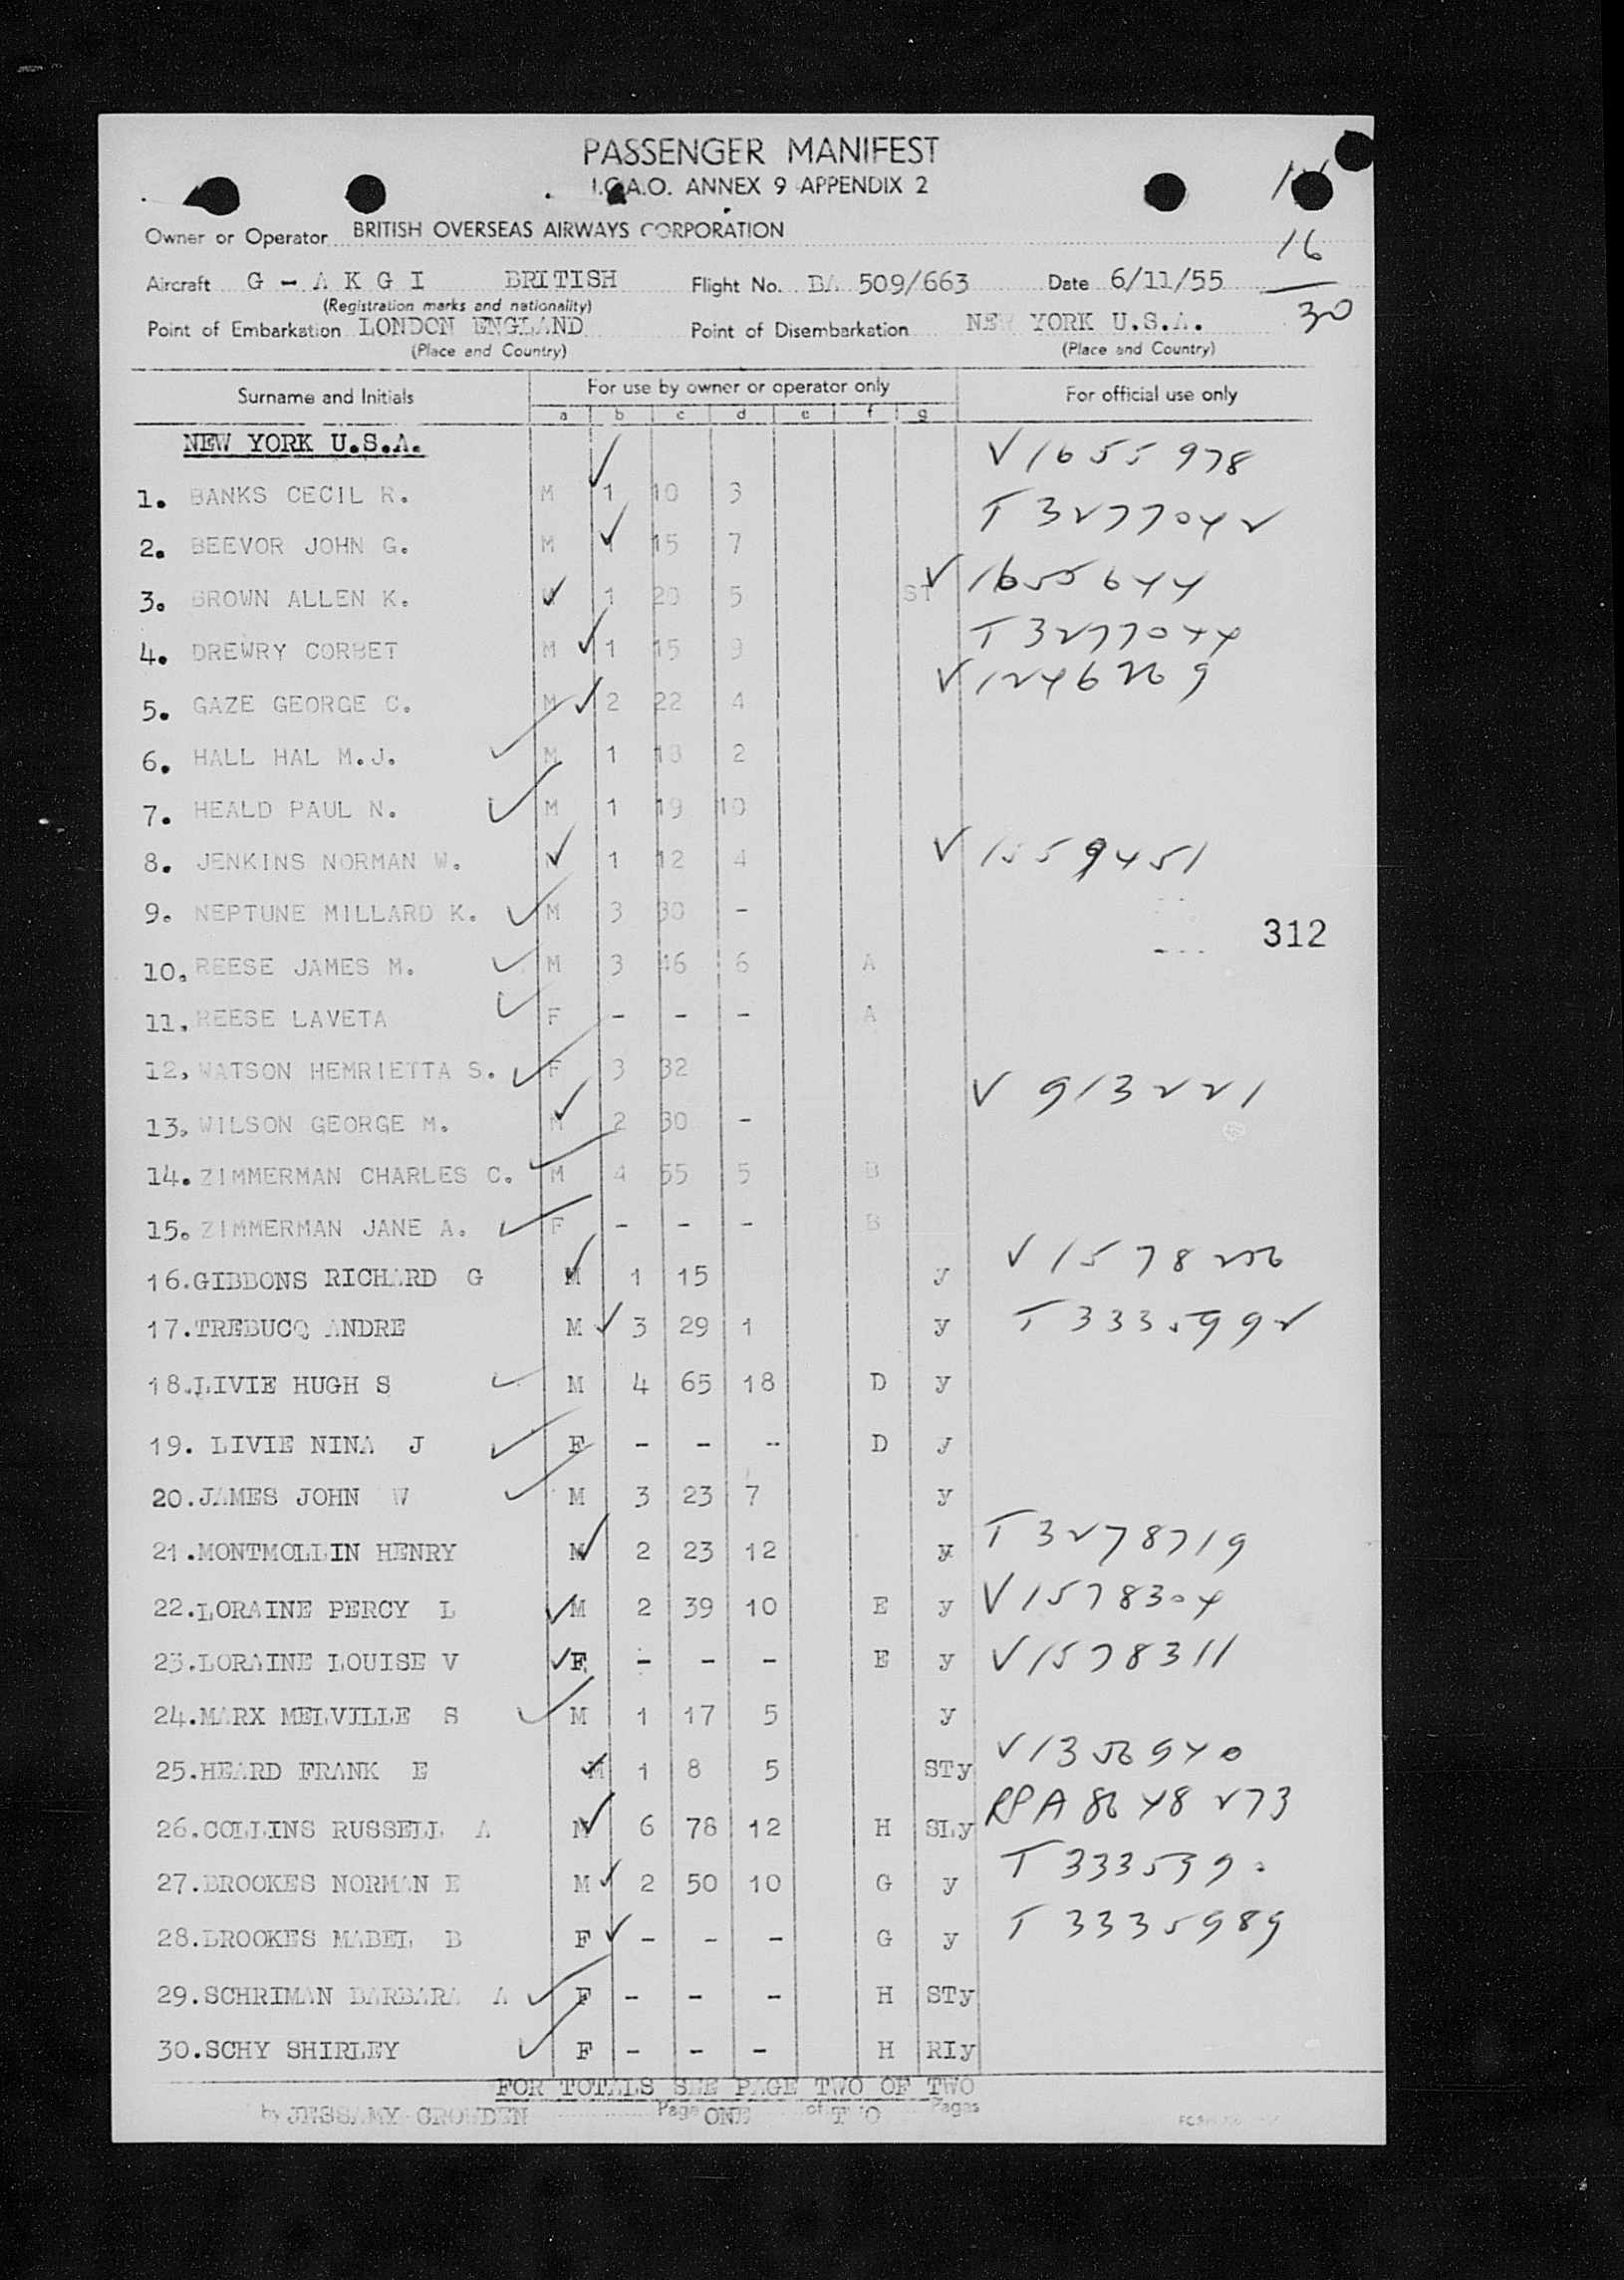 PASSENGER MANIFEST
I.C.A.O. ANNEX 9 APPENDIX 2
Owner or Operator BRITISH OVERSEAS AIRWAYS CORPORATION
16
Aircraft G - A K G I BRITISH Flight No. BA 509/663 Date 6/11/55
(Registration marks and nationality)
30
Point of Embarkation LONDON ENGLAND Point of Disembarkation NEW YORK U.S.A.
(Place and Country) (Place and Country)
Surname and Initials For use by owner or operator only For official use only
a b c d e f g
NEW YORK U.S.A. V 1655978
1. BANKS CECIL R. M 1 10 3
T 3277042
2. BEEVOR JOHN G. M 1 15 7
V 1655644
3. BROWN ALLEN K. M 1 20 5 ST
T 3277044
4. DREWRY CORBET M 1 15 9
V 1246269
5. GAZE GEORGE C. M 2 22 4
6. HALL HAL M.J. M 1 18 2
7. HEALD PAUL N. M 1 19 10
8. JENKINS NORMAN W. M 1 12 4 V 1559451
9. NEPTUNE MILLARD K. M 3 30 -
312
10. REESE JAMES M. M 3 46 6 A
11. REESE LAVETA F - - - A
12. WATSON HEMRIETTA S. F 3 32
V 913221
13. WILSON GEORGE M. M 2 30 -
14. ZIMMERMAN CHARLES C. M 4 55 5 B
15. ZIMMERMAN JANE A. F - - - B
16. GIBBONS RICHARD G M 1 15 y V 1578256
17. TREBUCQ ANDRE M 3 29 1 y T 3335992
18. LIVIE HUGH S M 4 65 18 D y
19. LIVIE NINA J F - - - D y
20. JAMES JOHN W M 3 23 7 y
21. MONTMOLLIN HENRY M 2 23 12 y T 3278719
22. LORAINE PERCY L M 2 39 10 E y V 1578304
23. LORAINE LOUISE V F - - - E y V 1578311
24. MARX MELVILLE S M 1 17 5 y
25. HEARD FRANK E M 1 8 5 STy V 1356940
26. COLLINS RUSSELL A M 6 78 12 H SLy RPA 8648273
27. BROOKES NORMAN E M 2 50 10 G y T 3335990
28. BROOKES MABEL B F - - - G y T 3335989
29. SCHRIMAN BARBARA A F - - - H STy
30. SCHY SHIRLEY F - - - H RIy
FOR TOTALS SEE PAGE TWO OF TWO
by JESSAMY CROWDEN Page ONE of TWO Pages